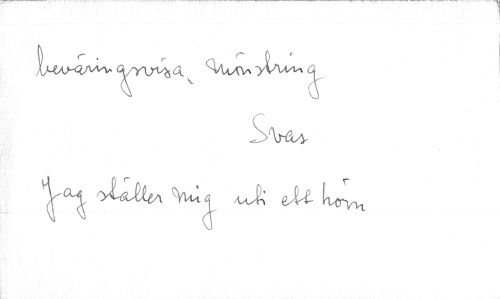 beväringsvisa, mönstring
Svas
Jag ställer mig uti ett hörn